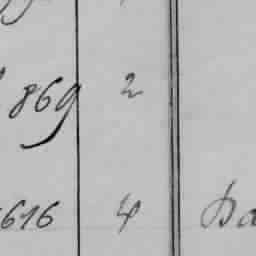 869 2
616 4